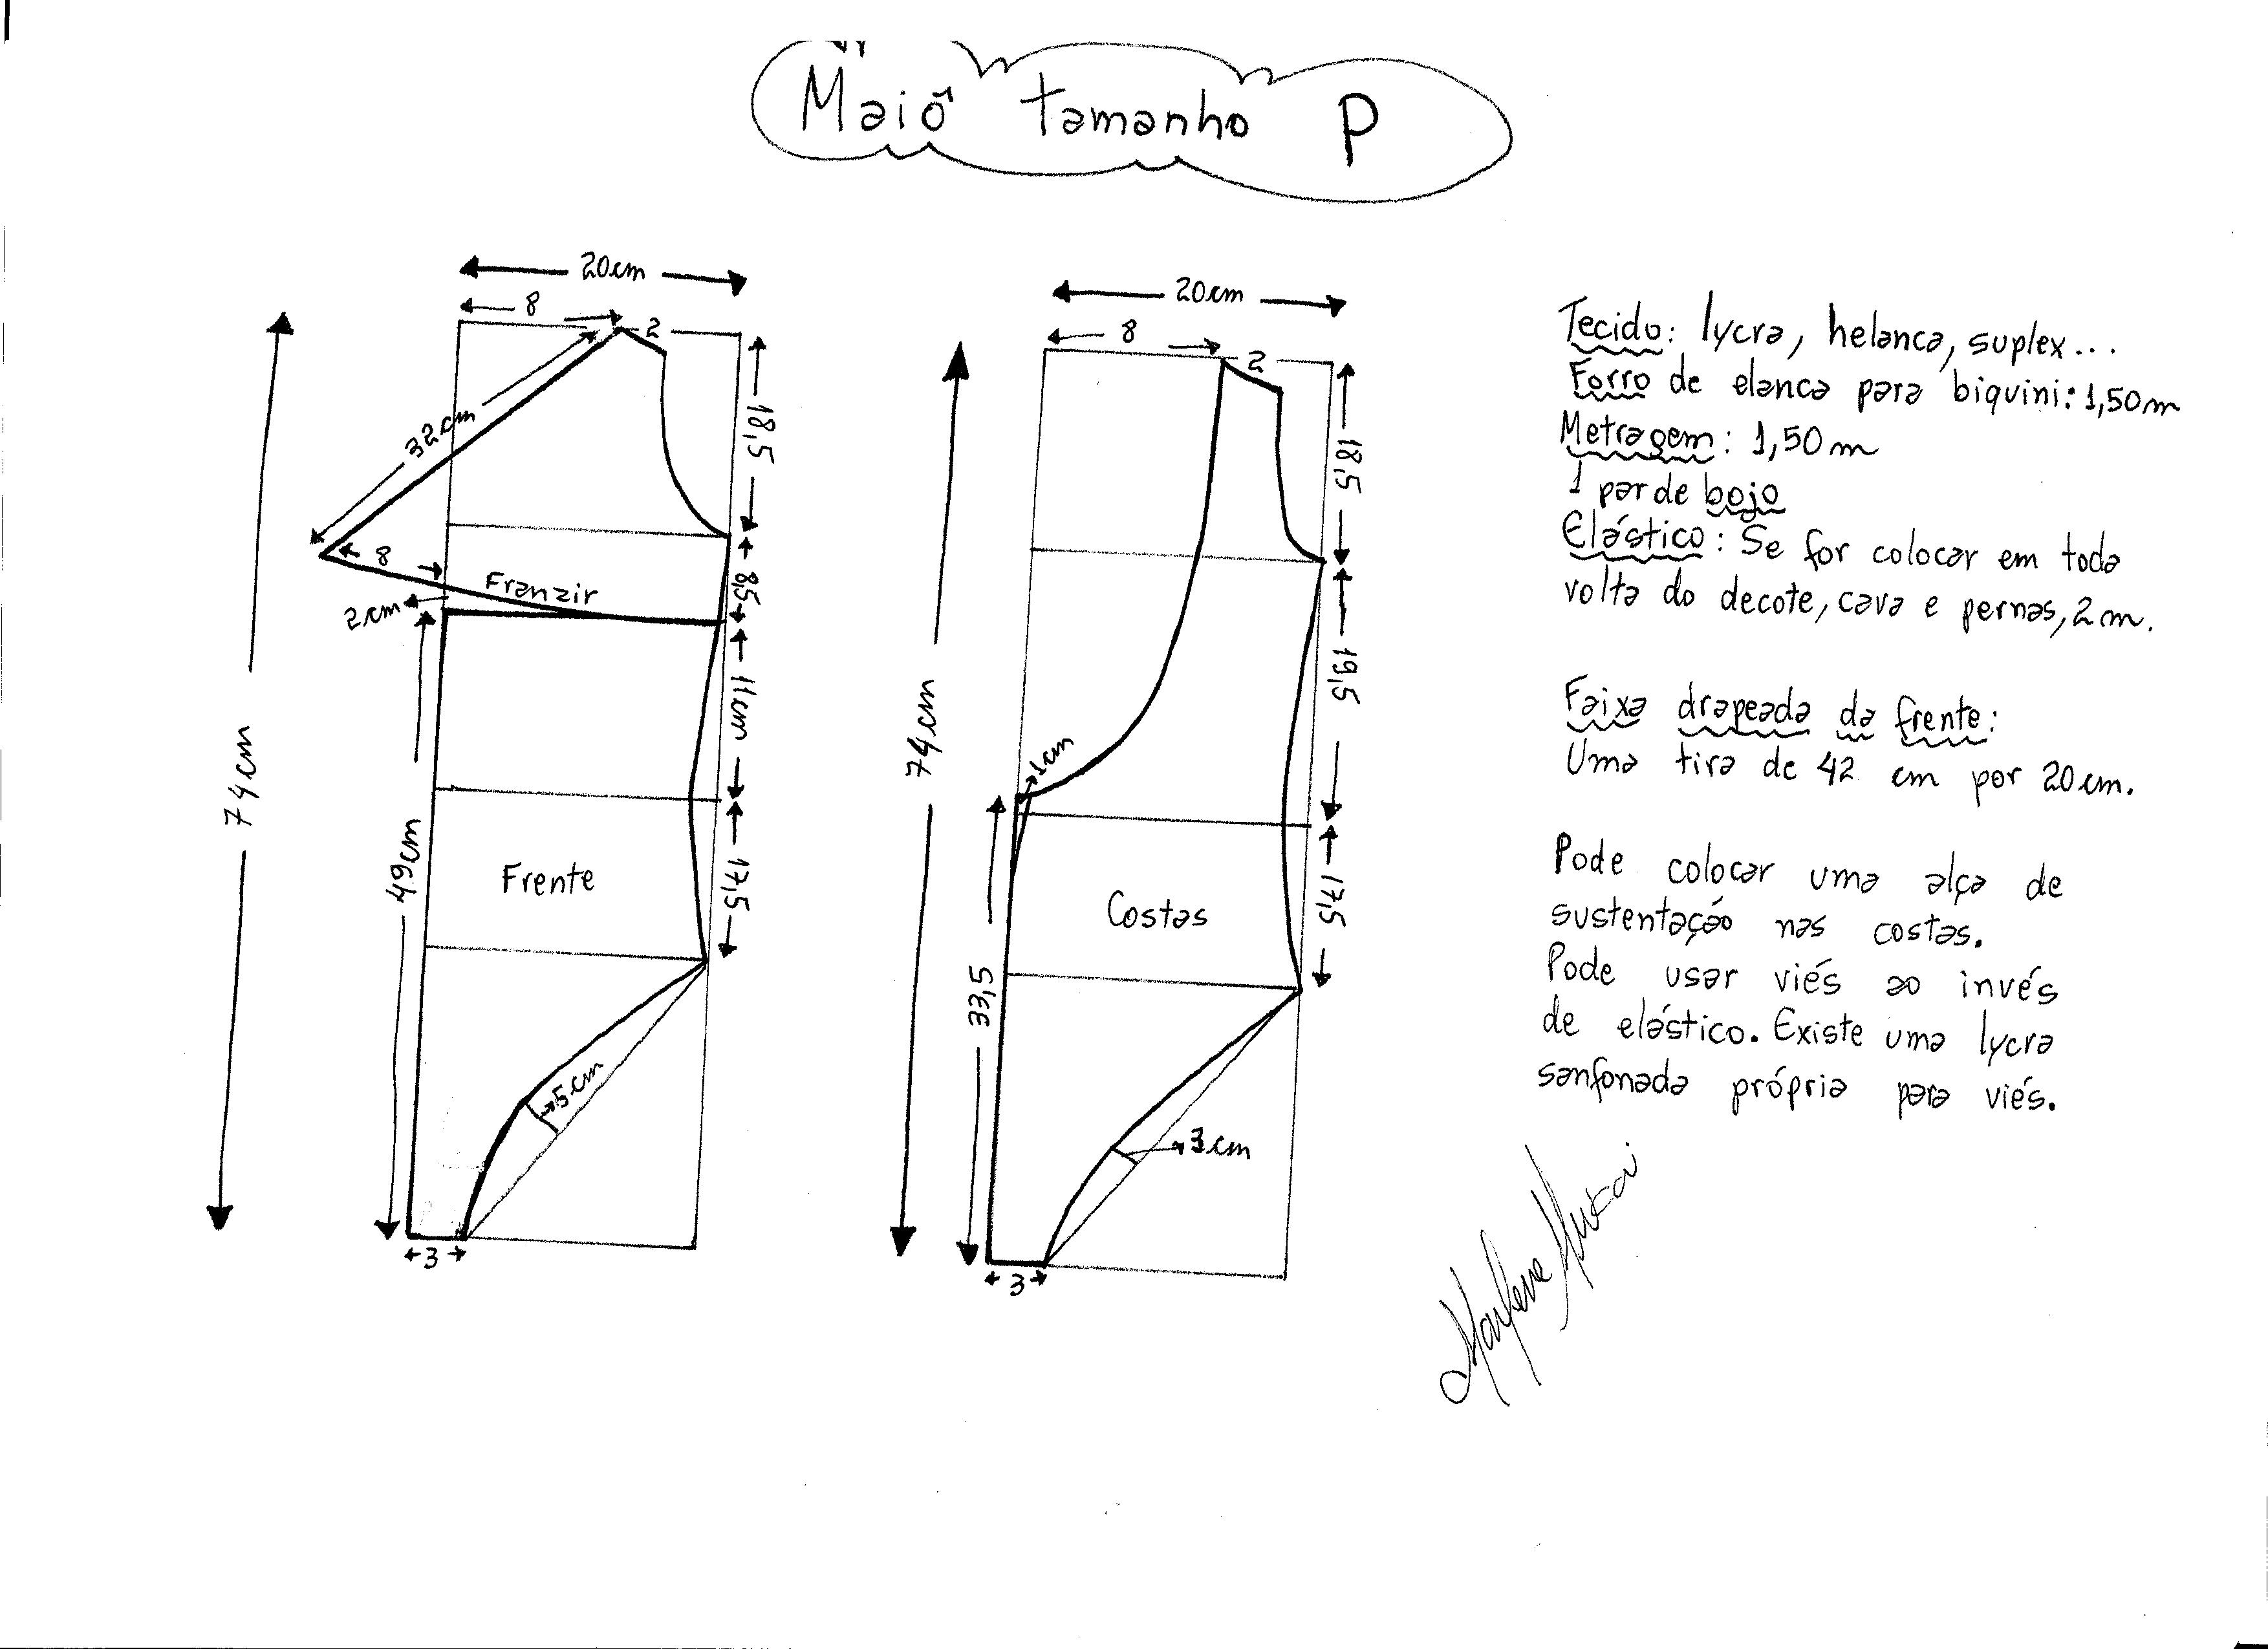 Maiô tamanho P
20cm
8
2
32cm
18,5
8
Franzir
8,5
2cm
11cm
74cm
49cm
Frente
17,5
5cm
3
20cm
8
2
18,5
19,5
74cm
1cm
Costas
17,5
33,5
3cm
3
Tecido: lycra, helanca, suplex...
Forro de elanca para biquini: 1,50m
Metragem: 1,50m
1 par de bojo
Elástico: Se for colocar em toda
volta do decote, cava e pernas, 2m.
Faixa drapeada da frente:
Uma tira de 42 cm por 20cm.
Pode colocar uma alça de
sustentação nas costas.
Pode usar viés ao invés
de elástico. Existe uma lycra
sanfonada própria para viés.
Marlene Mukai